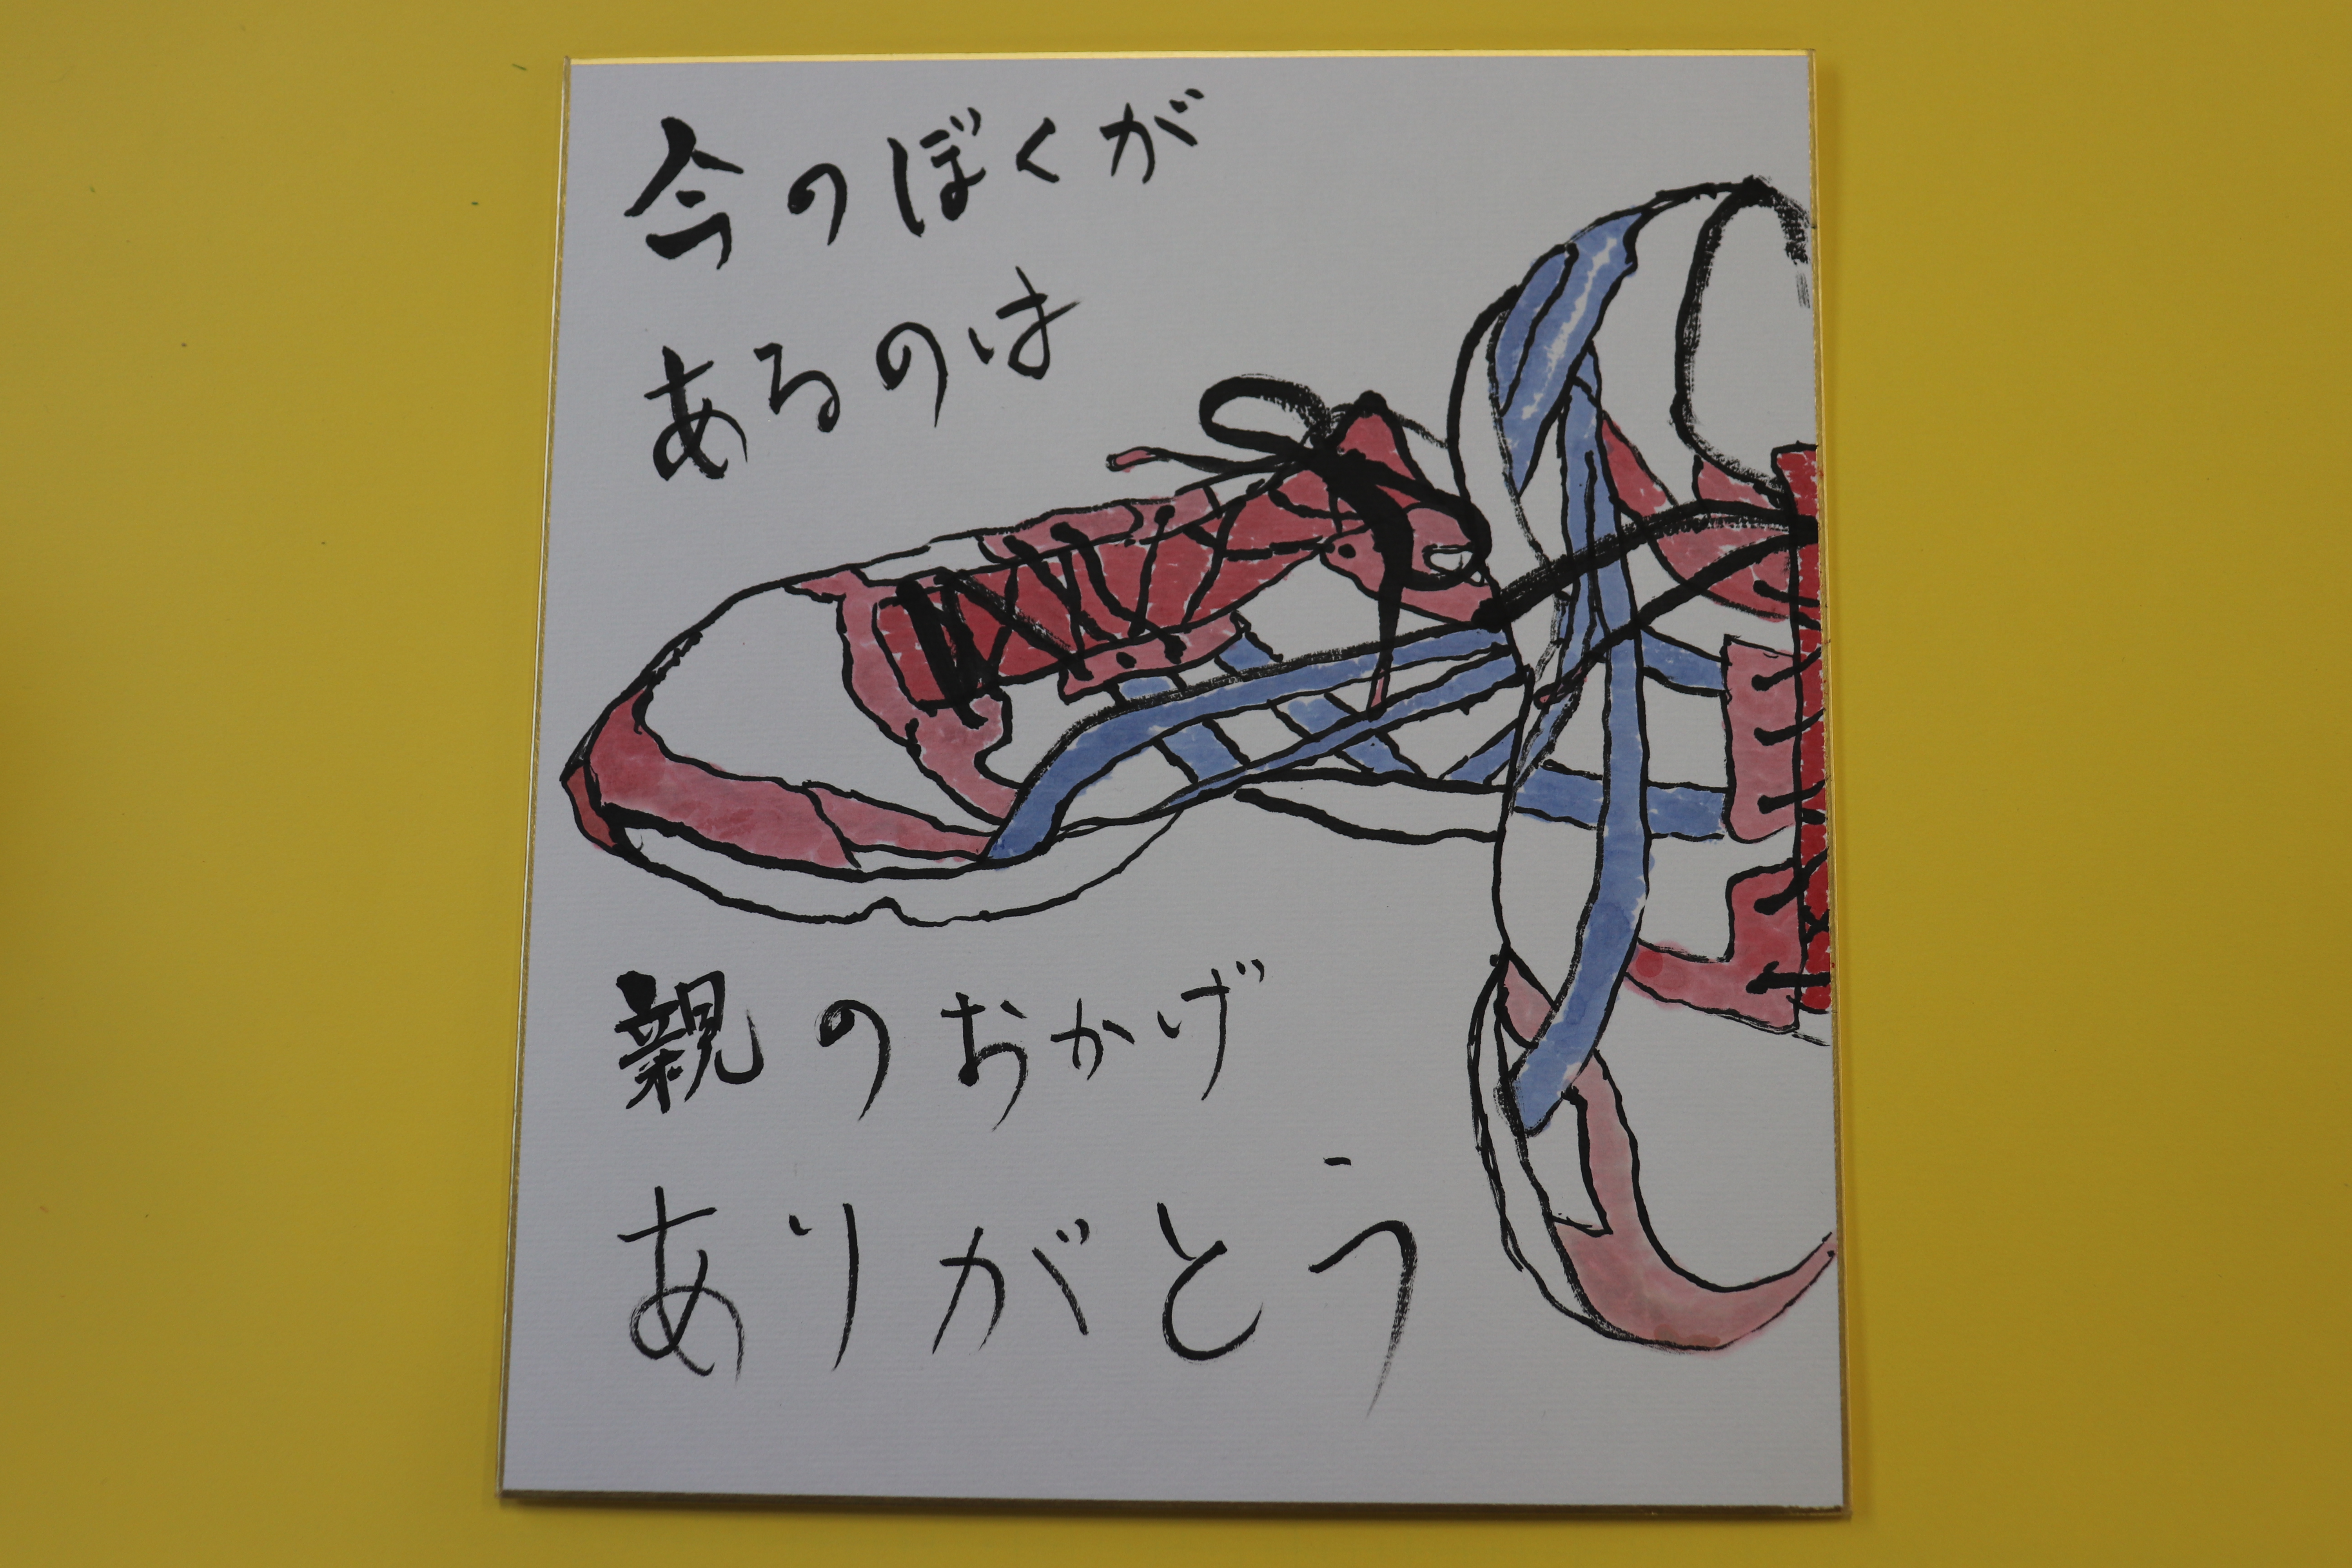 今のぼくが
あるのは
親のおかげ
ありがとう